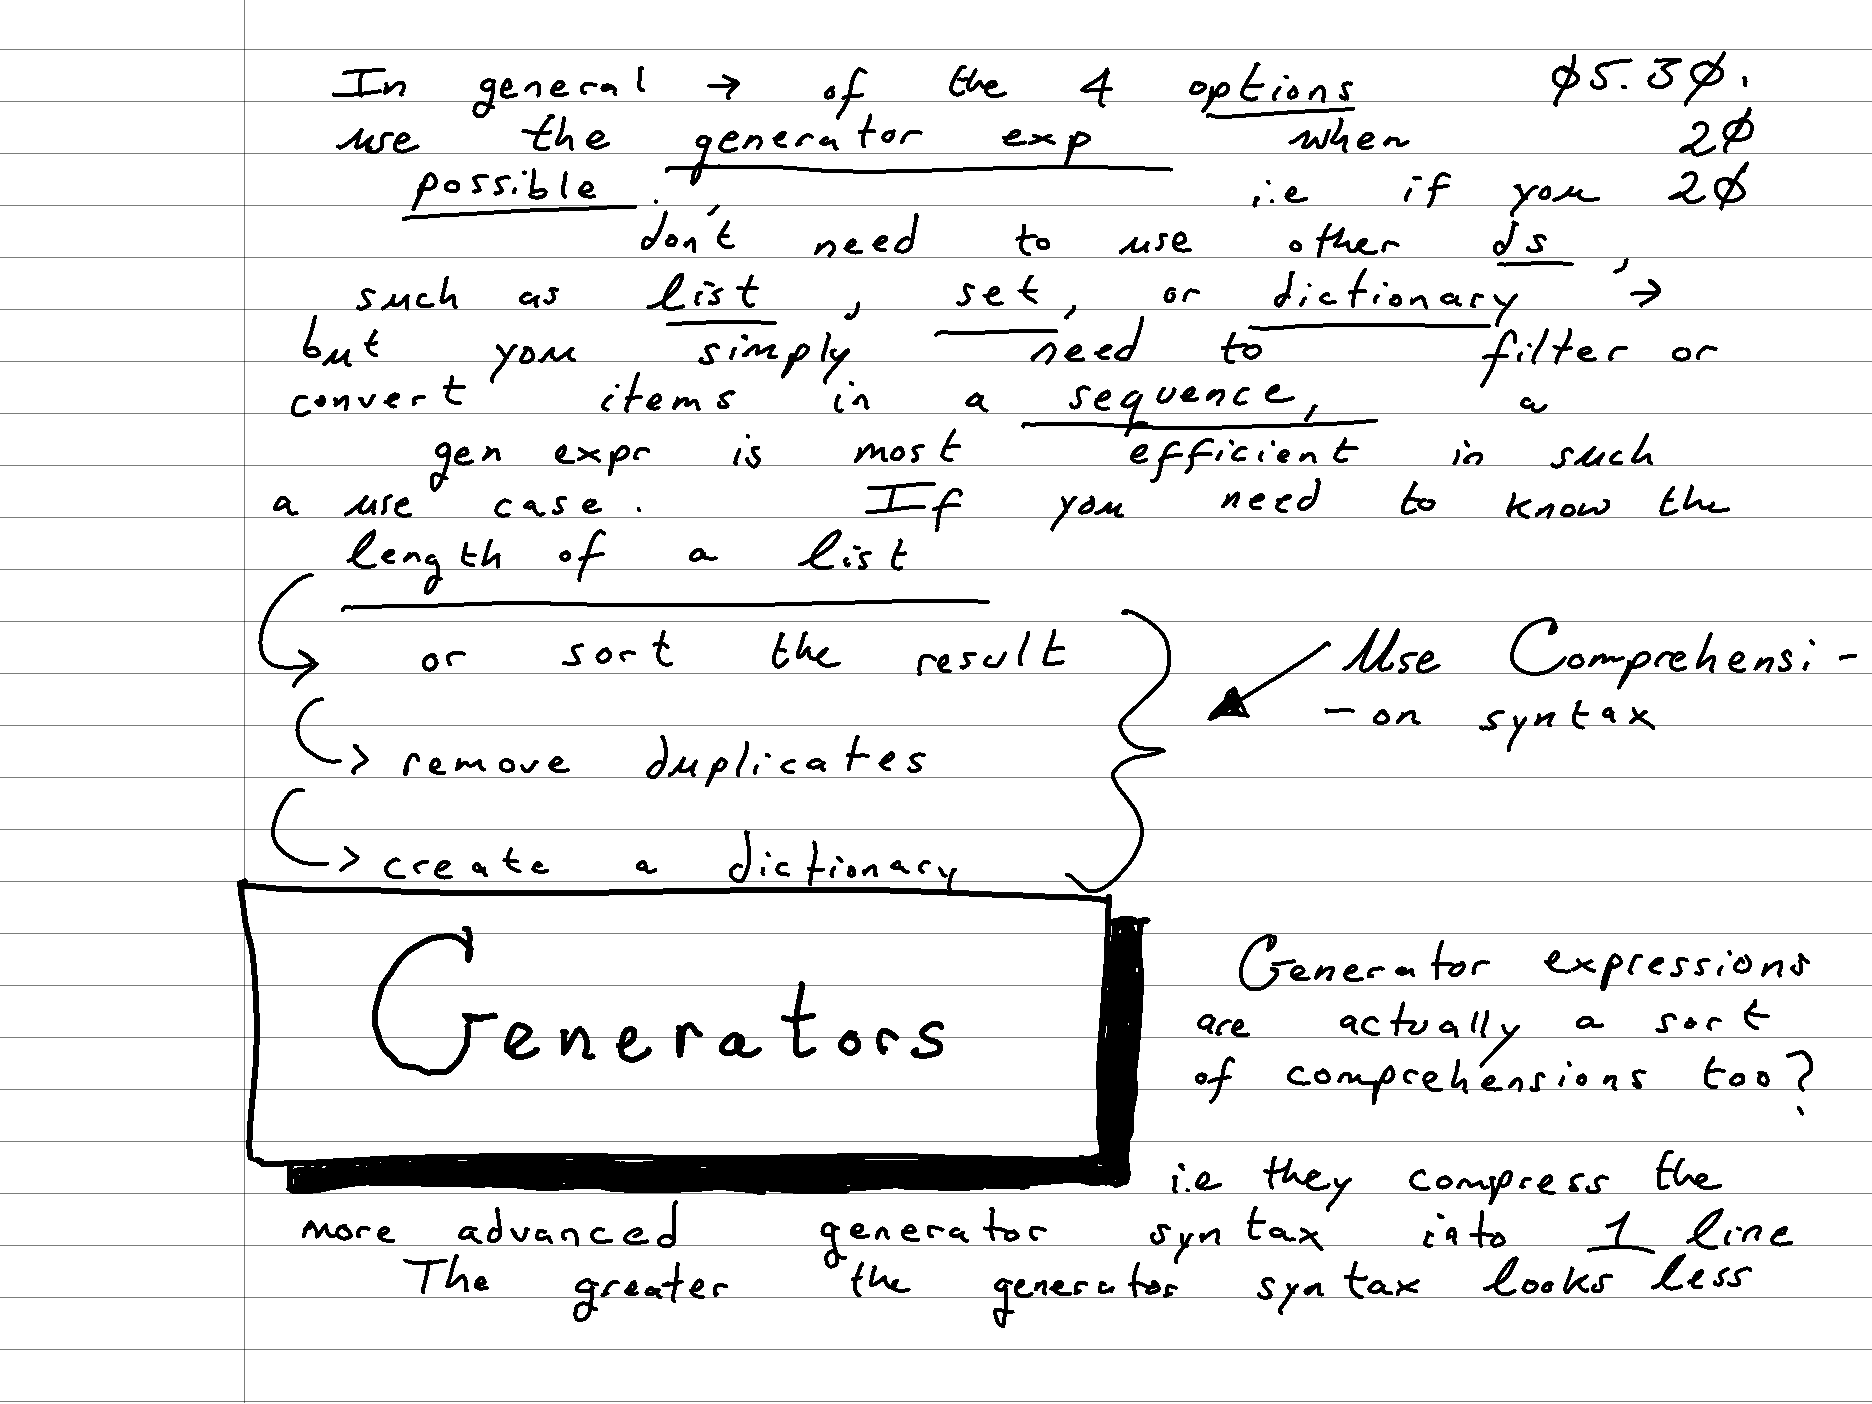 In general → of the 4 options ∅5.3∅.
use the generator exp when 2∅
possible. i.e if you 2∅
don't need to use other ds,
such as list, set, or dictionary →
but you simply need to filter or
convert items in a sequence, a
gen expr is most efficient in such
a use case. If you need to know the
length of a list
→ or sort the result
→ remove duplicates
→ create a dictionary
Use Comprehensi-
-on syntax
Generators
Generator expressions
are actually a sort
of comprehensions too?
i.e they compress the
more advanced generator syntax into 1 line
The greater the generator syntax looks less